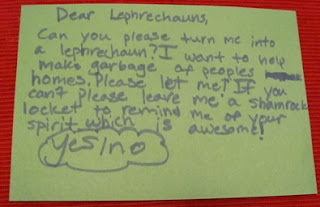 Dear Lephrechauns,
Can you please turn me into
a lephrechaun? I want to help
make garbage of peoples
homes. Please let me! If you
can't please leave me a shamrock
locket to remind me of your
spirit which is awesome!
yes/no